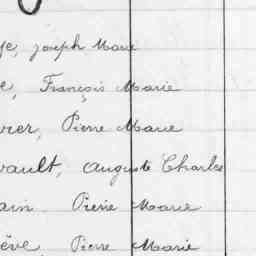 ye, Joseph Marie
e, François Marie
vrer, Pierre Marie
vault, Auguste Charles
ain Pierre Marie
ève Pierre Marie